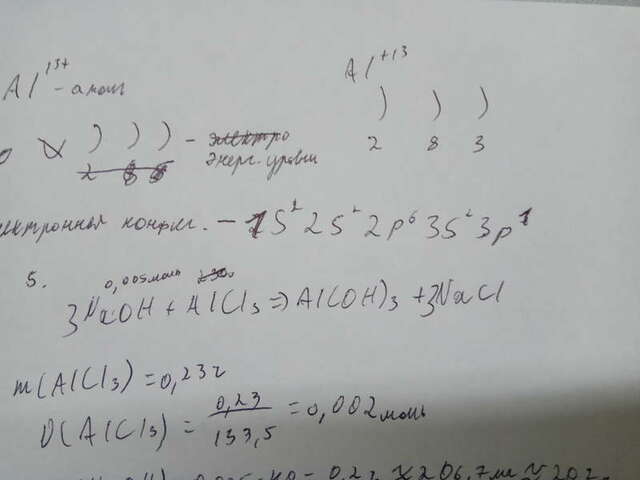 Al¹³⁺ - атом
Al⁺¹³
) ) ) - электро
2 8 3
энерг. уровни
2 8 8
электронная конфиг. - 1S² 2S² 2p⁶ 3S² 3p¹
5.
0,005 моль
3NaOH + AlCl₃ => Al(OH)₃ + 3NaCl
m(AlCl₃) = 0,23г
ν(AlCl₃) = 0,23 / 133,5 = 0,002 моль